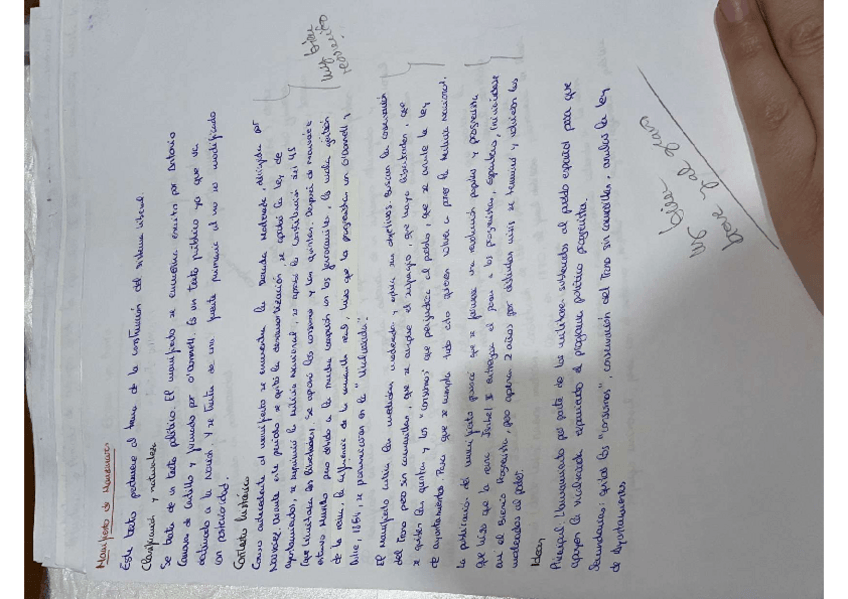 Manifiesto de Manzanares
Este texto pertenece al tema de la construcción del sistema liberal.
Clasificación y naturaleza
Se trata de un texto político. El manifiesto se encuentra escrito por Antonio
Cánovas del Castillo y firmado por O'Donnell. Es un texto público ya que va
destinado a la Nación. Y se trata de una fuente primaria al no ser modificado
con posterioridad.
Contexto histórico
Como antecedente al manifiesto se encuentra la Década Moderada dirigida por
Narváez. Durante este periodo se quitó la desamortización, se aprobó la ley de
ayuntamientos, se suprimió la Milicia Nacional, se aprobó la Constitución del 45
(que limitaba las libertades). Se aprobó los consumos y las quintas. Después de Narváez
estuvo Murillo pero debido a la mucha corrupción en los ferrocarriles, la mala gestión
de la reina, la influencia de la camarilla real, hizo que los progresistas con O'Donnell y
Dulce, 1854, se pronunciaran en la "Vicalvarada".
muy bien
El Manifiesto critica las medidas moderadas y expone sus objetivos. Buscan la conservación
del Trono pero sin camarillas, que se amplíe el sufragio, que haya libertades, que
se quiten las quintas y los "consumos" que perjudica al pueblo, que se anule la ley
de ayuntamientos. Para que se cumpla todo esto quieren volver a poner la milicia nacional.
La publicación del manifiesto provocó que se formase una revolución popular y progresista
que hizo que la reina Isabel II entregase el poder a los progresistas, Espartero, iniciándose
así el Bienio Progresista, pero apenas 2 años por distintas crisis se terminó y volvieron los
moderados al poder.
Ideas
Principal: llamamiento por parte de los militares sublevados al pueblo español para que
apoyen la vicalvarada exponiendo el programa político progresista.
Secundarias: quitar los "consumos", conservación del Trono sin camarillas, anular la ley
de Ayuntamientos.
bien